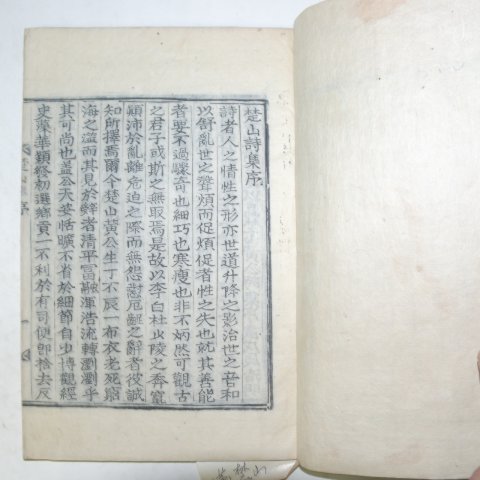 楚山詩集序
詩者人之情性之形亦世道升降之影治世之音和
以舒亂世之聲煩而促煩促者性之失也就其善能
者要不過驟奇也細巧也寒瘦也非不炳然可觀古
之君子或斯之無取焉是故以李白杜山陵之奔竄
顚沛於亂離危迫之際而無怨懟厄齪之辭者後誠
知所擇焉爾今楚山黃公生丁不辰一布衣老死窮
海之濫而其見於辭者淸平富融渾浩流轉瀏瀏乎
其可尚也盖公天安恬曠不省於細節自少博觀經
史藻華穎發初選鄕貢一不利於有司便卽捨去反
序